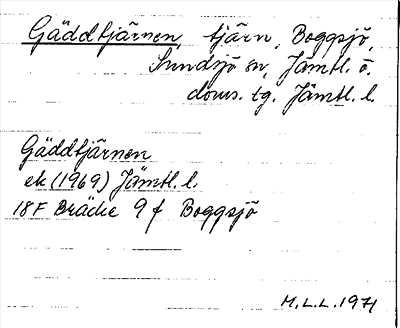 Gäddtjärnen, tjärn, Boggsjö,
Sundsjö sn, Jämtl. ö.
doms. tg. Jämtl. l.
Gäddtjärnen
ek (1969) Jämtl. l.
18F Bräcke 9 f Boggsjö
M.L.L. 1971